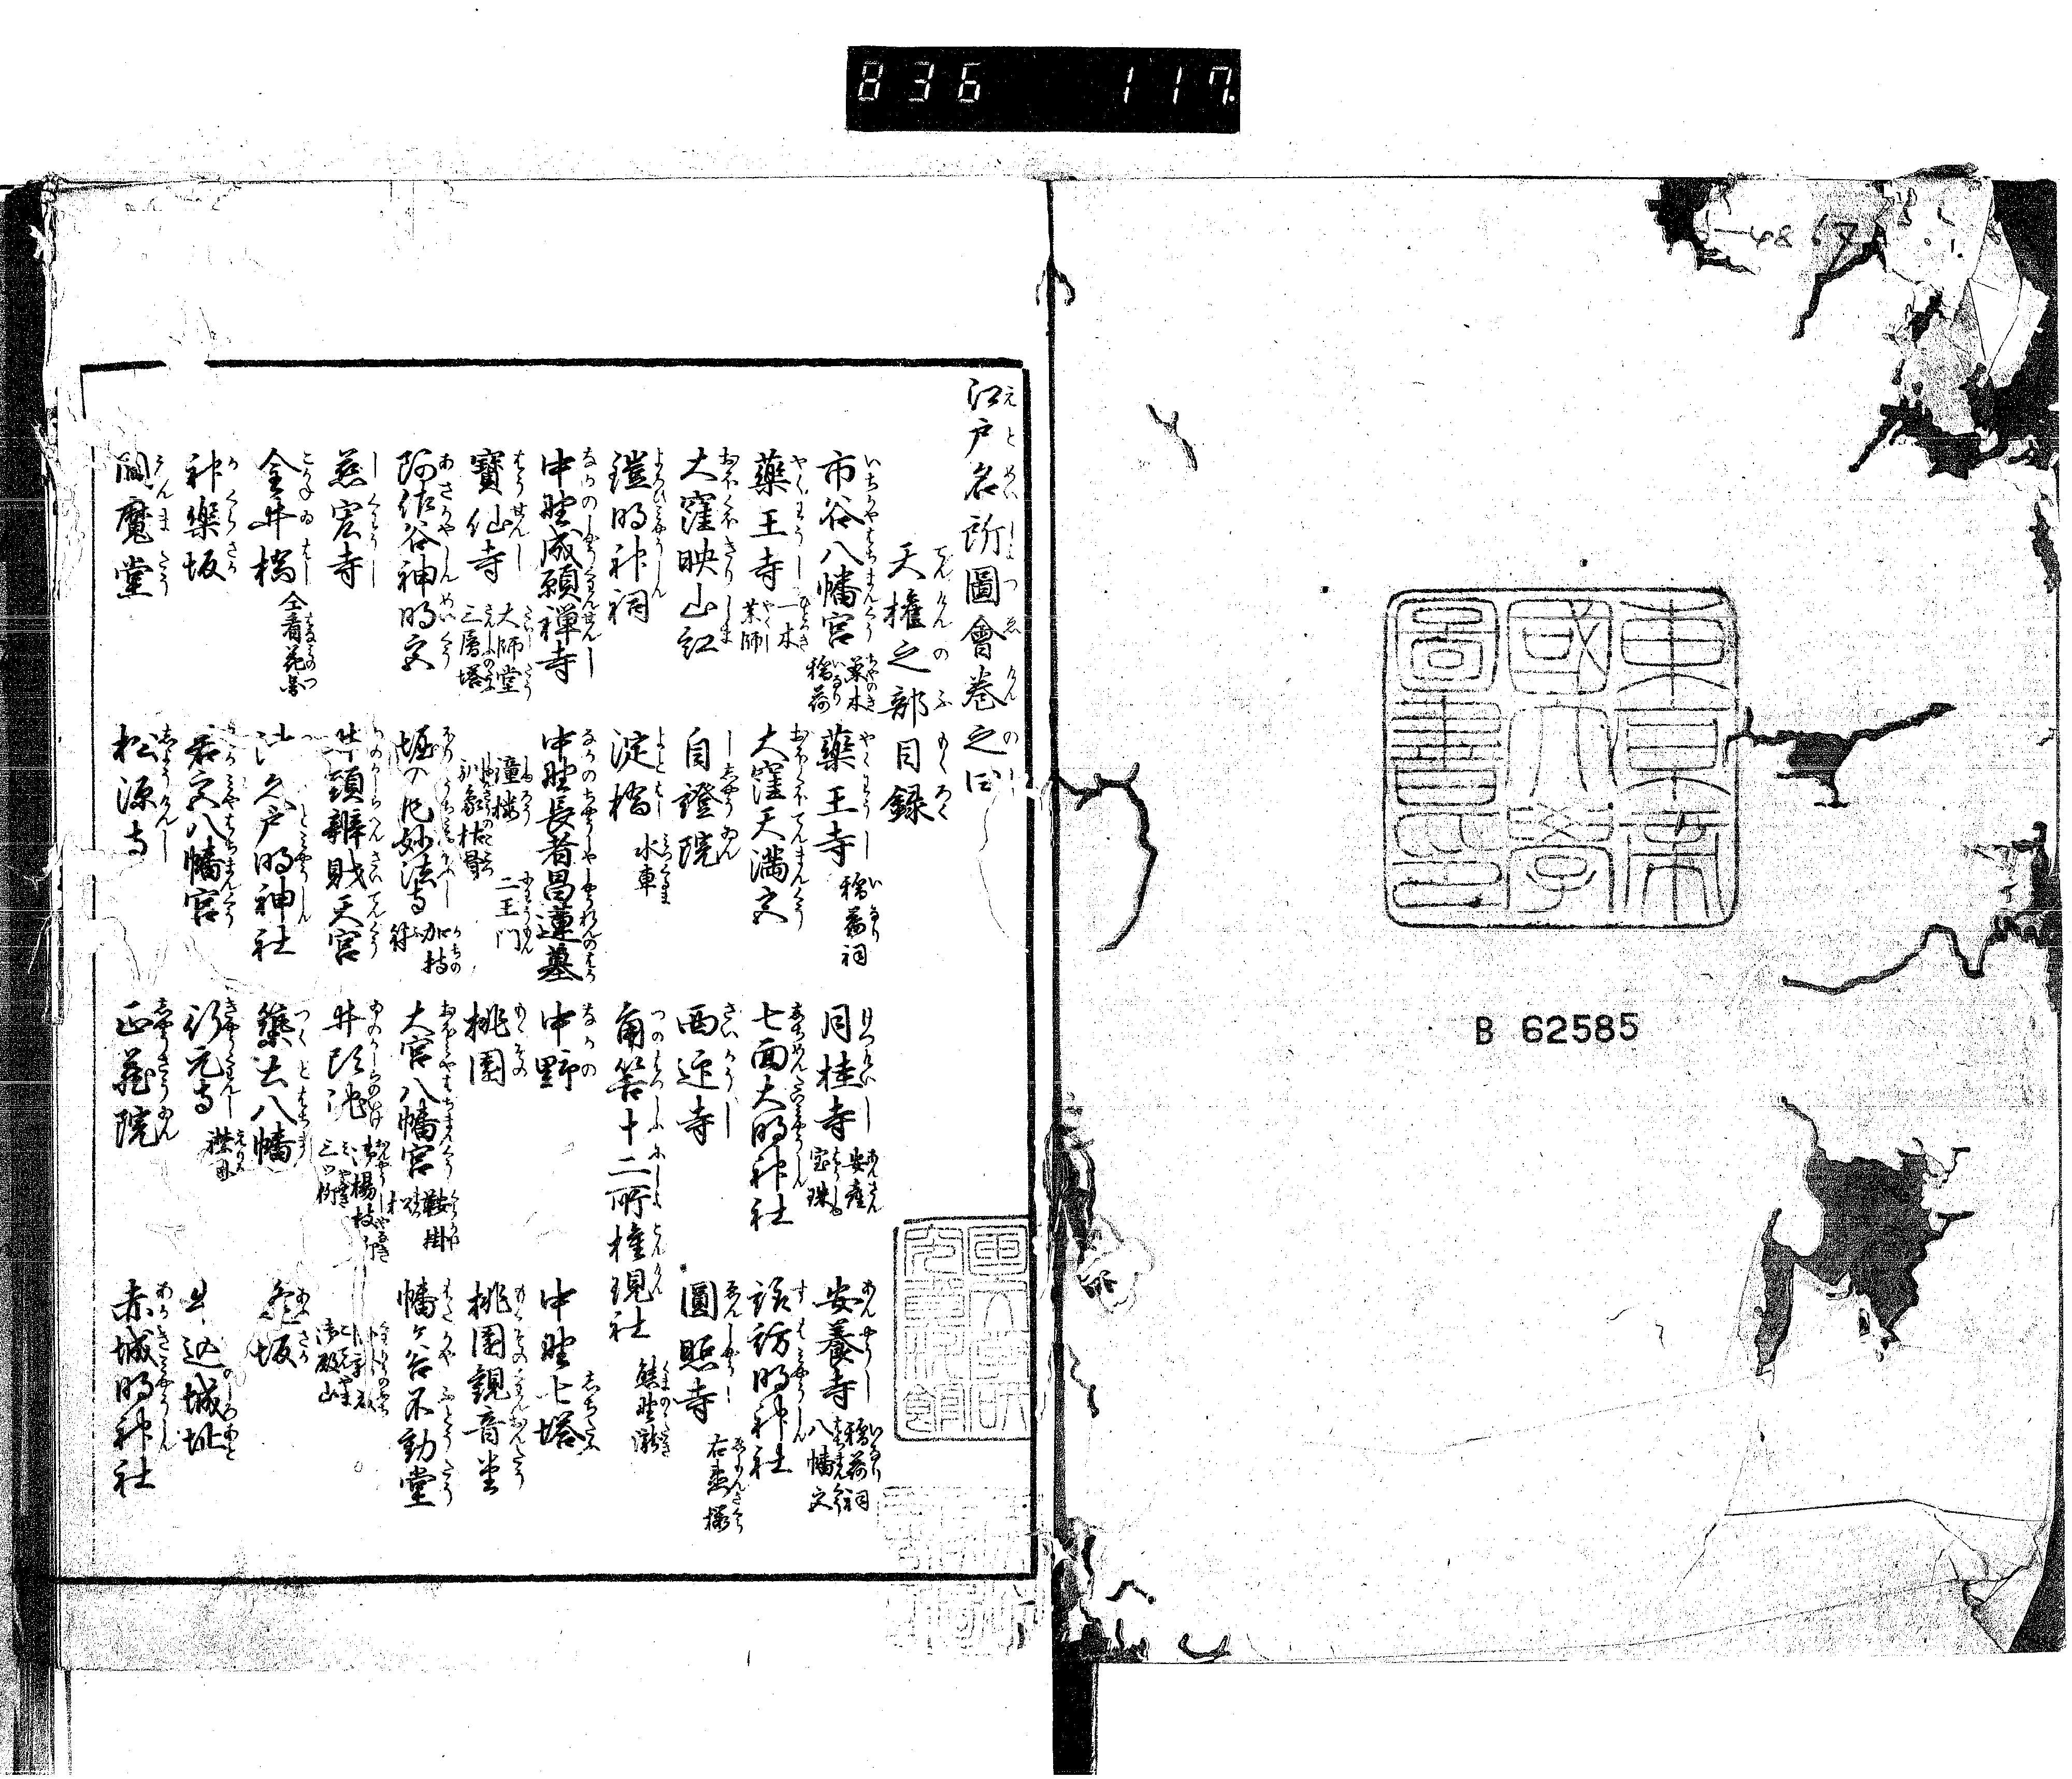 836 117.
48
東京帝
國大學
圖書印
B 62585
江戸名所圖會巻之四
天權之部 目録
市谷八幡宮 茶木 稲荷
藥王寺 稲荷祠
月桂寺 安産 宝珠
安養寺 稲荷祠 八幡宮
藥王寺 一木 薬師
大窪天満宮
七面大明神社
諏訪明神社
大窪映山紅
自證院
西迎寺
圓照寺 右衛門桜
鎧明神祠
淀橋 水車
角筈十二所権現社 熊野瀧
中野成願禅寺
中野長者昌蓮墓
中野
中野七塔
寳仙寺 大師堂 三層塔
鐘楼 馴象枯骨
二王門
桃園
桃園観音堂
阿佐谷神明宮
堀の内妙法寺 加持 符
大宮八幡宮 鞍掛 松
幡ヶ谷不動堂
慈宏寺
井頭辨財天宮
井頭池 御楊枝 三つ柳
御殿山
金井橋 全看花
津久戸明神社
築土八幡
坂
神樂坂
若宮八幡宮
行元寺 襟掛
牛込城址
閻魔堂
松源寺
正蔵院
赤城明神社